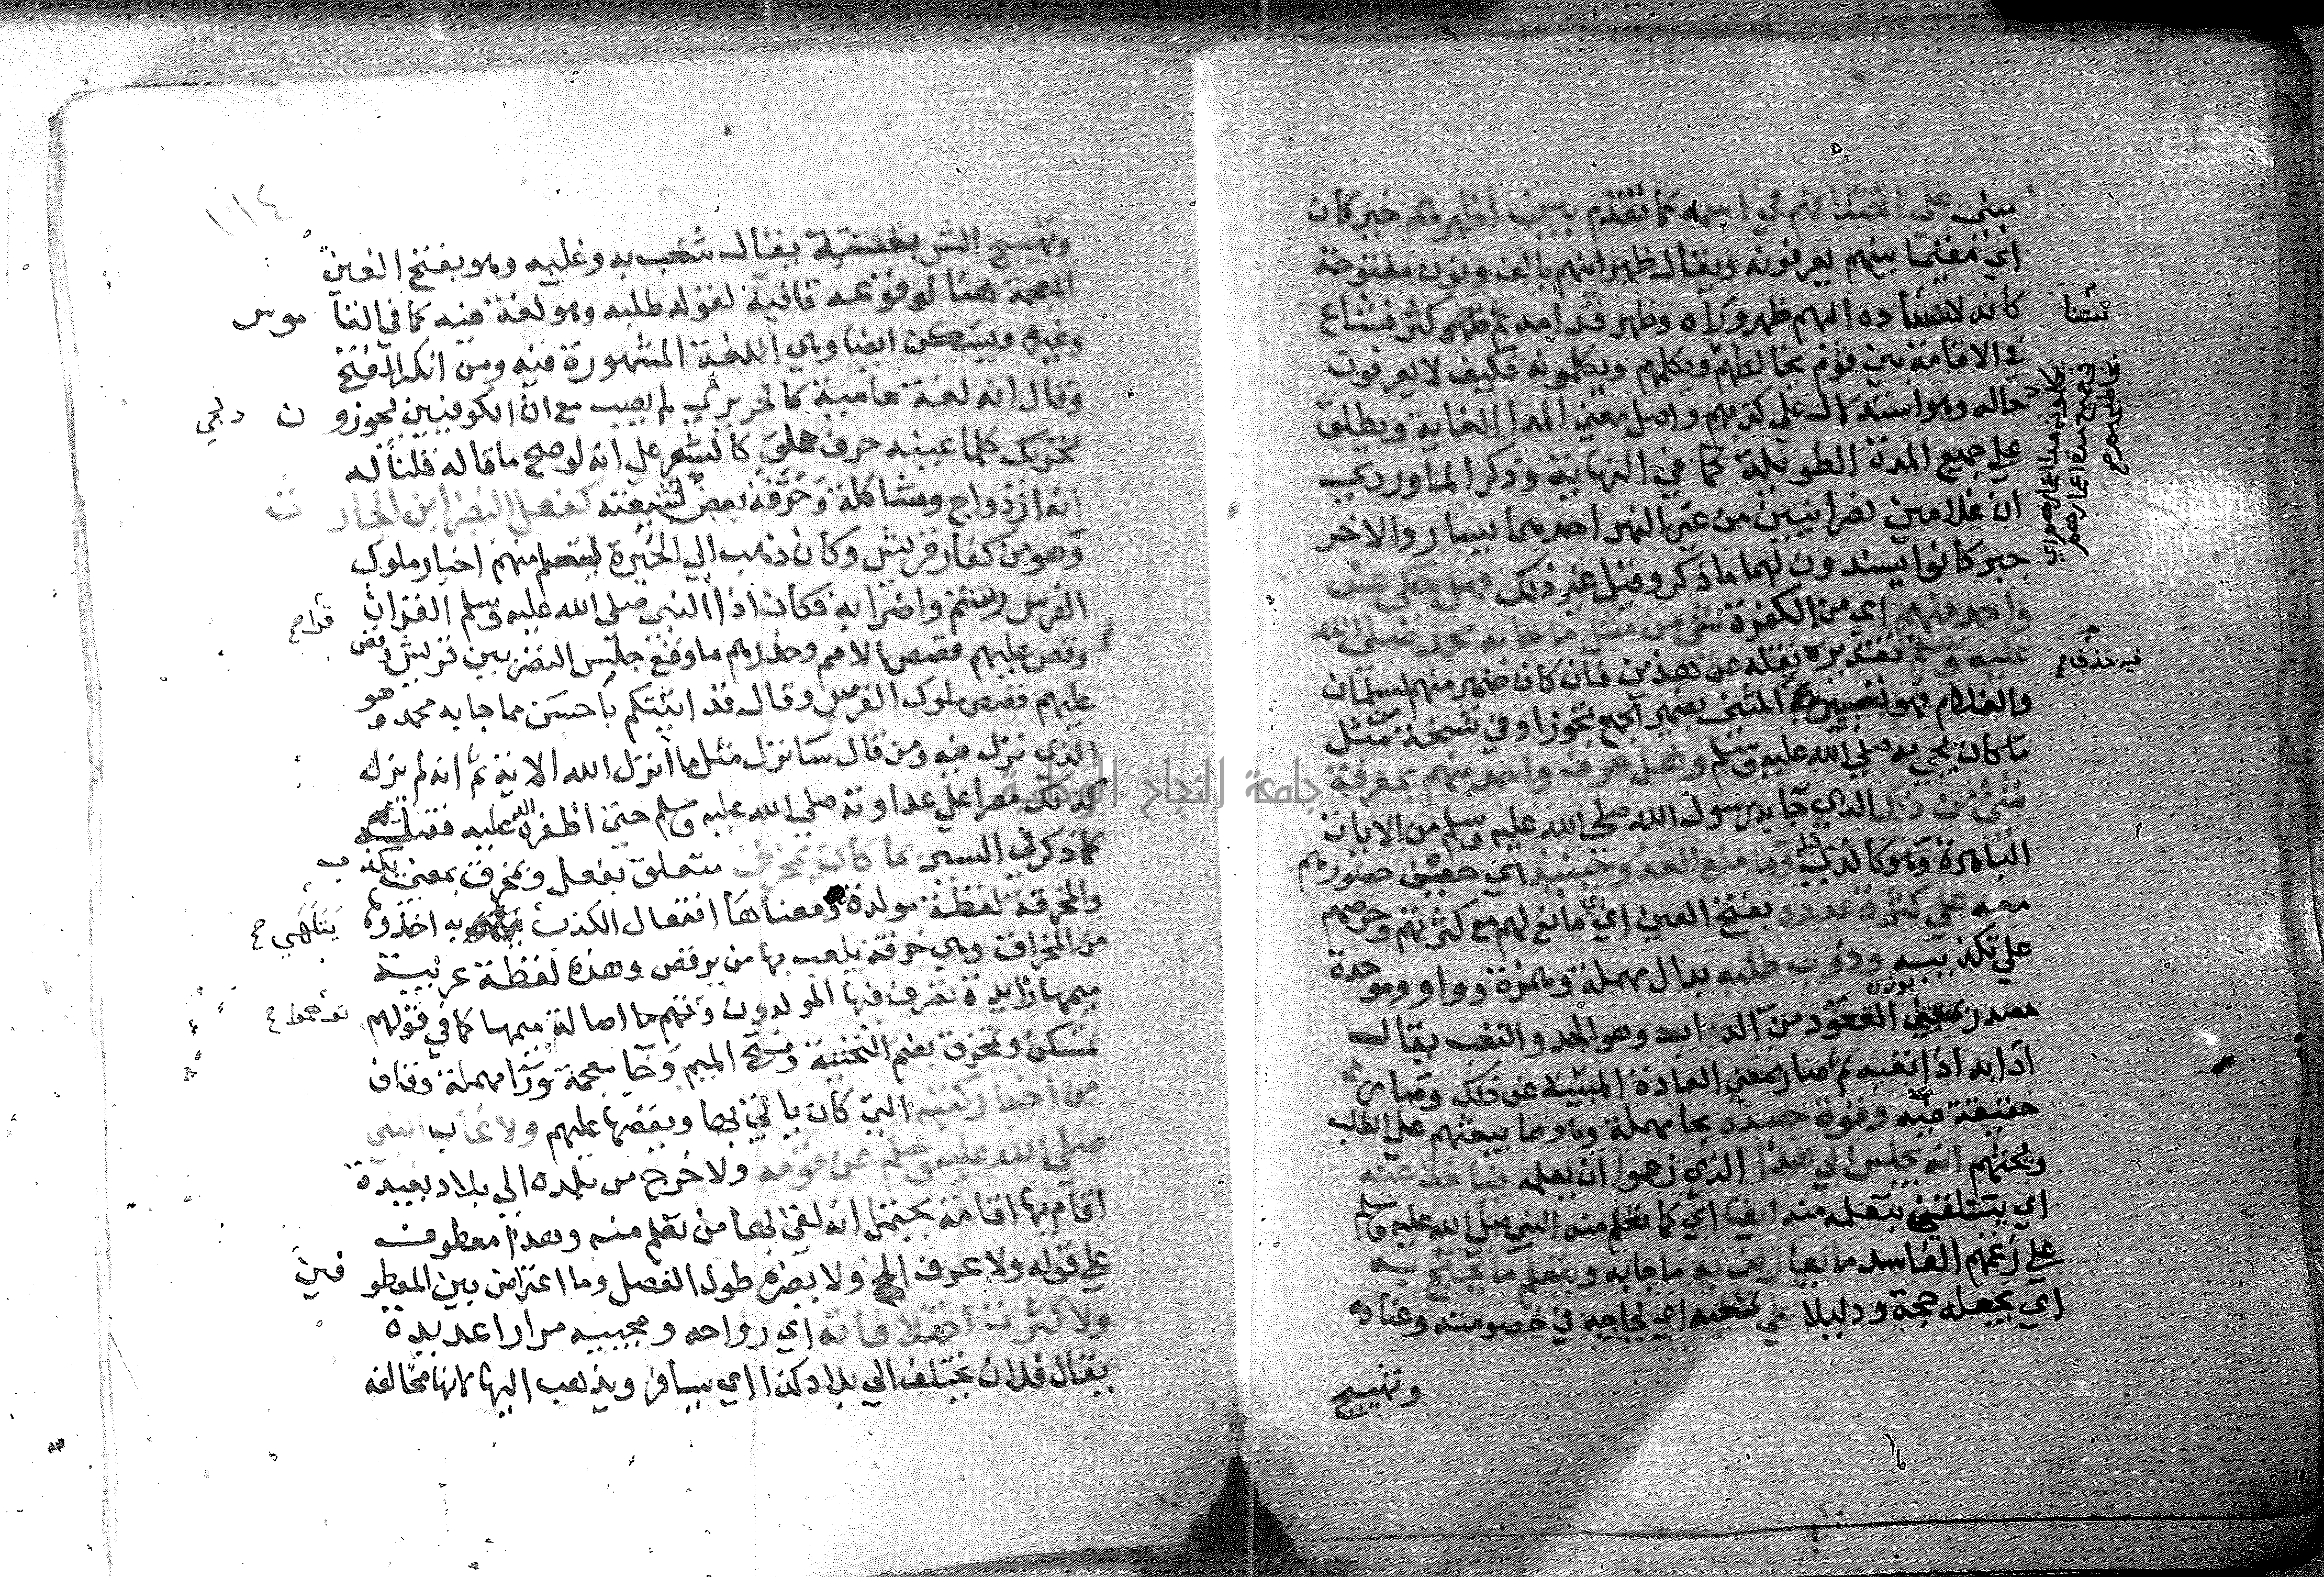 يبني على اختلافهم في اسمه كما تقدم بين اظهرهم خبر كان
اي مقيما بينهم يعرفونه ويقال ظهرانيهم بالف ونون مفتوحة
كانه لاستناده اليهم ظهر وراه وظهر قدامه ثم كثر فشاع
في الاقامة بين قوم يخالطهم ويكلمهم ويكلمونه فكيف لا يعرفون
حاله وهو استدلال على كذبهم واصل معنى المدا الغاية ويطلق
على جميع المدة الطويلة كما في النهاية وذكر الماوردي
ان غلامين نصرانيين من عين التمر احدهما يسار والاخر
جبر كانوا يسندون لهما ما ذكر وقيل غير ذلك فهل حكى عن
واحد منهم اي من الكفرة شئ من مثل ما جا به محمد صلى الله
عليه وسلم تقديره نقله عن هذين فان كان ضمير منهم لسلمان
والغلام فهو تعبير عن المثنى بضمير الجمع تجوزا وفي نسخة من مثل
ما كان يجي به صلى الله عليه وسلم وهل عرف واحد منهم بمعرفة
شئ من ذلك الذي جا به رسول الله صلى الله عليه وسلم من الايات
الباهرة وهو كالذي قبله وما منع العدو حينئذ اي حين حضورهم
معه على كثرة عدده بفتح العين اي اي مانع لهم مع كثرتهم وحرصهم
على تكذيبه ودؤب طلبه بدال مهملة وهمزة وواو وموحدة
مصدر بوزن القعود من الداب وهو الجد والتعب يقال
ادابه اذا اتعبه ثم صار بمعنى العادة المبينة عن ذلك وصار
حقيقة فيه وقوة حسده بحا مهملة وهو مما يبعثهم على الطلب
ويحثهم ان يجلس الى هذا الذي زعموا ان يعلمه فياخذ عنه
اي يتلقى بتعلمه منه ايضا اي كما تعلم منه النبي صلى الله عليه وسلم
على زعمهم الفاسد ما يعارض به ما جا به ويتعلم ما يحتج به
اي يجعله حجة ودليلا على شغبه اي لجاجه في خصومته وعناده
وتهييج
فيه حذف
١١٤
وتهييج الشر بخفية يقال شغب به وعليه وهو بفتح الغين
المعجمة هنا لوقوعه قافية لقوله طلبه وهو لغة فيه كما في القاموس
وغيره ويسكن ايضا وهي اللغة المشهورة فيه ومن انكر الفتح
وقال انه لغة عامية كالحريري لم يصب مع ان الكوفيين يجوزون
تحريك كلما عينه حرف حلق كالشعر على انه لو صح ما قاله قلنا له
انه ازدواج ومشاكلة وحرفه بعض لشيعته كفعل النضر ابن الحارث
وهو من كفار قريش وكان ذهب الى الحيرة ليتعلم منهم اخبار ملوك
الفرس رستم واضرابه فكان اذا النبي صلى الله عليه وسلم القران قرا
وقص عليهم قصص الامم وحذرهم ما وقع جلس النضر بين قريش وقص
عليهم قصص ملوك الفرس وقال قد اتيتكم باحسن مما جا به محمد وهو
الذي نزل فيه ومن قال سانزل مثل ما انزل الله الاية ثم انه لم يزل
كذلك مصرا على عداوته صلى الله عليه وسلم حتى اظفره الله عليه فقتله
كما ذكر في السير بما كان يمخرق متعلق بفعل ويمخرق بمعنى يكذب
والمخرقة لفظة مولدة ومعناها افتعال الكذب به اخذوه
من المخراق وهي خرقة يلعب بها من يرقص وهذه لفظة عربية
ميمها زايدة تصرف فيها المولدون وتوهموا اصالة ميمها كما في قولهم
تمسكن ويمخرق بضم التحتية وفتح الميم وخا معجمة ورا مهملة وقاف
من اخبار كتبه التي كان ياتي بها ويقصها عليهم ولا غاب النبي
صلى الله عليه وسلم عن قومه ولا خرج من بلده الى بلاد بعيدة
اقام بها اقامة يحتمل انه لقى بها من تعلم منه وهذا معطوف
على قوله ولا عرف الخ ولا يضره طول الفصل وما اعترض بين المعطوفين
ولا كثرت اختلافاته اي رواحه ومجيبه مرارا عديدة
يقال فلان يختلف الى بلاد كذا اي يسافر ويذهب اليها لانها مخالفة
دلجي
يتلهى
توهموا
جامعة النجاح الوطنية